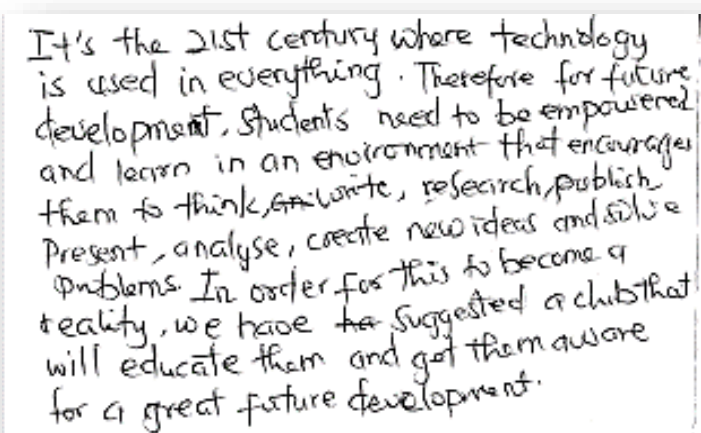 It's the 21st century where technology
is used in everything. Therefore for future
development, students need to be empowered
and learn in an environment that encourages
them to think, write, research, publish
Present, analyse, create new ideas and solve
problems. In order for this to become a
reality, we have suggested a club that
will educate them and get them aware
for a great future development.